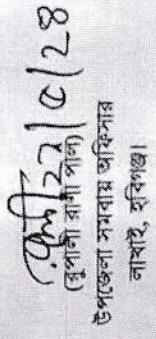 ২২/৫/২৪
(রুপালী রাণী পাল)
উপজেলা সমবায় অফিসার
লাখাই, হবিগঞ্জ।